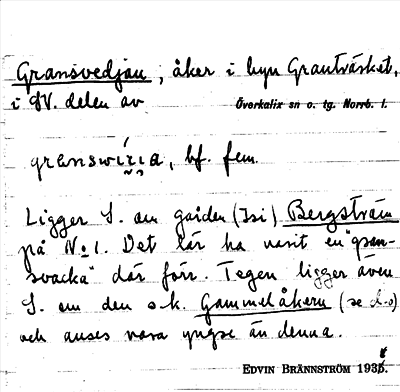 Gransvedjan, åker i byn Grantväsket,
i SV. delen av Överkalix sn o. tg. Norrb. l.
granswi̯ri̯a, bf. fem.
Ligger S. om gården (Isi) Bergström
på No 1. Det lär ha varit en
svacka" där förr. Tegen ligger även
S. om den s.k. Gammelåkern (se d.o)
och anses vara yngre än denna.
EDVIN BRÄNNSTRÖM 193